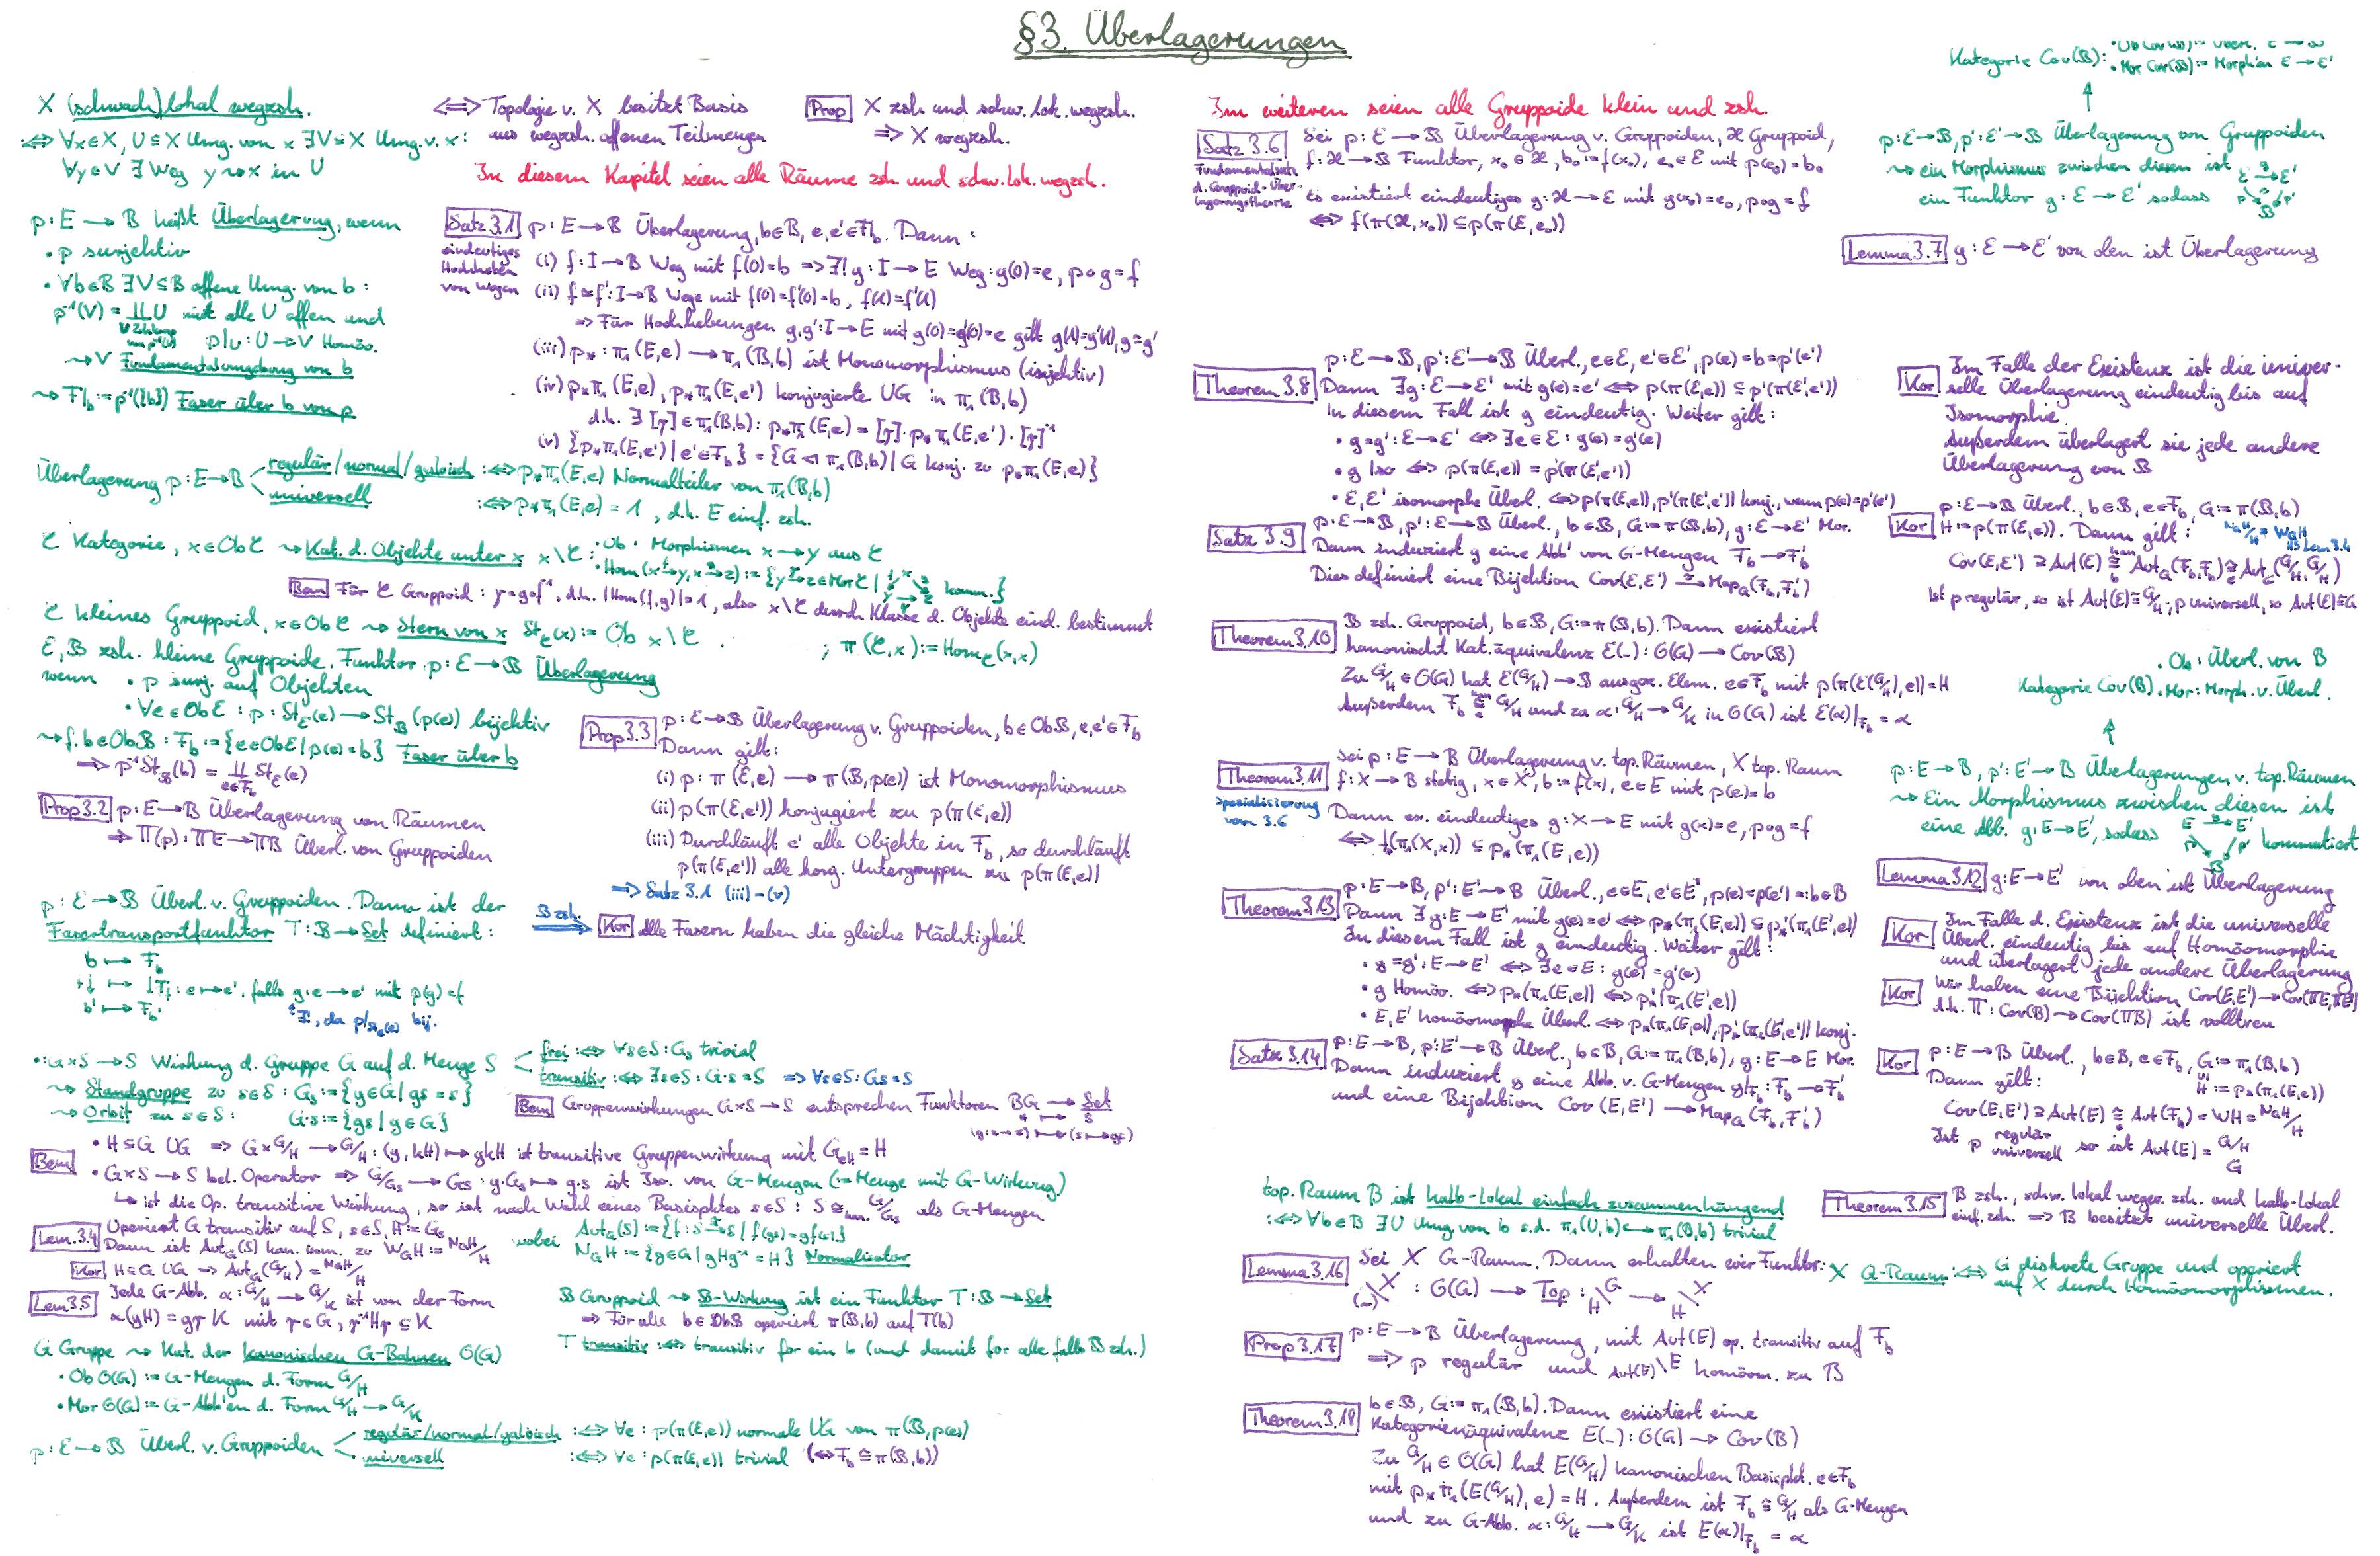 §3. Überlagerungen
X (schwach) lokal wegzsh.
:⇔ ∀x∈X, U⊆X Umg. von x ∃V⊆X Umg. v. x:
∀y∈V ∃ Weg y⇝x in U
⇔ Topologie v. X besitzt Basis
aus wegzsh. offenen Teilmengen
Prop X zsh und schw. lok. wegzsh.
⇒ X wegzsh.
In diesem Kapitel seien alle Räume zsh. und schw. lok. wegzsh.
p: E → B heißt Überlagerung, wenn
• p surjektiv
• ∀b∈B ∃V⊆B offene Umg. von b:
p⁻¹(V) = ∐U mit alle U offen und
p|U : U → V Homöo.
⇝ V Fundamentalumgebung von b
⇝ F_b := p⁻¹({b}) Faser über b von p
Satz 3.1 p: E → B Überlagerung, b∈B, e,e'∈F_b. Dann:
eindeutiges
Hochheben
von Wegen
(i) f: I→B Weg mit f(0)=b ⇒ ∃! g: I → E Weg: g(0)=e, p∘g=f
(ii) f≃f': I→B Wege mit f(0)=f'(0)=b, f(1)=f'(1)
⇒ Für Hochhebungen g,g': I→E mit g(0)=g'(0)=e gilt g(1)=g'(1), g≃g'
(iii) p_*: π₁(E,e) → π₁(B,b) ist Monomorphismus (injektiv)
(iv) p_*π₁(E,e), p_*π₁(E,e') konjugierte UG in π₁(B,b)
d.h. ∃ [γ]∈π₁(B,b): p_*π₁(E,e) = [γ]·p_*π₁(E,e')·[γ]⁻¹
(v) {p_*π₁(E,e') | e'∈F_b} = {G ⊲ π₁(B,b) | G konj. zu p_*π₁(E,e)}
Überlagerung p: E→B < regulär/normal/galoisch :⇔ p_*π₁(E,e) Normalteiler von π₁(B,b)
universell :⇔ p_*π₁(E,e) = 1, d.h. E einf. zsh.
C Kategorie, x∈Ob C ⇝ Kat. d. Objekte unter x x\C : • Ob: Morphismen x → y aus C
• Hom(x→y, x→z) := {y→z∈Mor C | komm.}
Bem Für C Gruppoid: γ=g∘f⁻¹, d.h. |Hom(f,g)|=1, also x\C durch Klasse d. Objekte eind. bestimmt
C kleines Gruppoid, x∈Ob C ⇝ Stern von x St_C(x) := Ob x\C ; π(C,x) := Hom_C(x,x)
E, B zsh. kleine Gruppoide. Funktor p: E → B Überlagerung
wenn • p surj. auf Objekten
• ∀e∈Ob E : p: St_E(e) → St_B(p(e)) bijektiv
⇝ f. b∈Ob B : F_b := {e∈Ob E | p(e)=b} Faser über b
⇒ p⁻¹St_B(b) = ∐_{e∈F_b} St_E(e)
Prop 3.2 p: E→B Überlagerung von Räumen
⇒ Π(p): ΠE→ΠB Überl. von Gruppoiden
Prop 3.3 p: E→B Überlagerung v. Gruppoiden, b∈Ob B, e,e'∈F_b
Dann gilt:
(i) p: π(E,e) → π(B,p(e)) ist Monomorphismus
(ii) p(π(E,e')) konjugiert zu p(π(E,e))
(iii) Durchläuft e' alle Objekte in F_b, so durchläuft
p(π(E,e')) alle konj. Untergruppen zu p(π(E,e))
⇒ Satz 3.1 (iii)-(v)
p: E→B Überl. v. Gruppoiden. Dann ist der
Fasertransportfunktor T: B→Set definiert:
b ↦ F_b
f↓ ↦ ↓T_f : e↦e', falls g: e→e' mit p(g)=f
b' ↦ F_b'
∃!, da p|St_E(e) bij.
B zsh. Kor Alle Fasern haben die gleiche Mächtigkeit
•: G×S→S Wirkung d. Gruppe G auf d. Menge S < frei :⇔ ∀s∈S: G_s trivial
transitiv :⇔ ∃s∈S: G·s=S ⇒ ∀s∈S: Gs=S
⇝ Standgruppe zu s∈S : G_s := {g∈G | gs=s}
⇝ Orbit zu s∈S: G·s := {gs | g∈G}
Bem Gruppenwirkungen G×S→S entsprechen Funktoren BG → Set
* ↦ S
(g:*→*) ↦ (s↦gs)
Bem • H≤G UG ⇒ G×G/H → G/H : (g,kH)↦gkH ist transitive Gruppenwirkung mit G_eH = H
• G×S→S bel. Operator ⇒ G/G_s → Gs : g·G_s ↦ g·s ist Iso. von G-Mengen (:= Menge mit G-Wirkung)
↳ ist die Op. transitive Wirkung, so ist nach Wahl eines Basispktes s∈S : S ≅_kan. G/G_s als G-Mengen
Lem. 3.4 Operiert G transitiv auf S, s∈S, H:=G_s
Dann ist Aut_G(S) kan. isom. zu W_GH := N_GH/H
wobei Aut_G(S) := {f: S→S | f(gs)=gf(s)}
N_GH := {g∈G | gHg⁻¹=H} Normalisator
Kor H≤G UG ⇒ Aut_G(G/H) = N_GH/H
Lem 3.5 Jede G-Abb. α: G/H → G/K ist von der Form
α(gH) = gγK mit γ∈G, γ⁻¹Hγ ⊆ K
B Gruppoid ⇝ B-Wirkung ist ein Funktor T: B → Set
⇒ Für alle b∈Ob B operiert π(B,b) auf T(b)
T transitiv :⇔ transitiv für ein b (und damit für alle falls B zsh.)
G Gruppe ⇝ Kat. der kanonischen G-Bahnen O(G)
• Ob O(G) := G-Mengen d. Form G/H
• Mor O(G) := G-Abb'en d. Form G/H → G/K
p: E→B Überl. v. Gruppoiden < regulär/normal/galoisch :⇔ ∀e: p(π(E,e)) normale UG von π(B,p(e))
universell :⇔ ∀e: p(π(E,e)) trivial (⇔ F_b ≅ π(B,b))
Im weiteren seien alle Gruppoide klein und zsh.
Satz 3.6 Sei p: E→B Überlagerung v. Gruppoiden, X Gruppoid,
f: X→B Funktor, x₀∈X, b₀:=f(x₀), e₀∈E mit p(e₀)=b₀
Fundamentalsatz
d. Gruppoid-Über-
lagerungstheorie
Es existiert eindeutiges g: X→E mit g(x₀)=e₀, p∘g=f
⇔ f(π(X,x₀)) ⊆ p(π(E,e₀))
Kategorie Cov(B): • Ob Cov(B) := Überl. E → B
• Mor Cov(B) := Morphismen E → E'
p: E→B, p': E'→B Überlagerung von Gruppoiden
⇝ ein Morphismus zwischen diesen ist
ein Funktor g: E → E' sodass
E →g E'
p p'
B
Lemma 3.7 g: E→E' von oben ist Überlagerung
p: E→B, p': E'→B Überl., e∈E, e'∈E', p(e)=b=p'(e')
Theorem 3.8 Dann ∃g: E→E' mit g(e)=e' ⇔ p(π(E,e)) ⊆ p'(π(E',e'))
In diesem Fall ist g eindeutig. Weiter gilt:
• g=g': E→E' ⇔ ∃e∈E : g(e)=g'(e)
• g Iso ⇔ p(π(E,e)) = p'(π(E',e'))
• E,E' isomorphe Überl. ⇔ p(π(E,e)), p'(π(E',e')) konj., wenn p(e)=p'(e')
Kor Im Falle der Existenz ist die univer-
selle Überlagerung eindeutig bis auf
Isomorphie.
Außerdem überlagert sie jede andere
Überlagerung von B
Satz 3.9 p: E→B, p': E→B Überl., b∈B, G:=π(B,b), g: E→E' Mor.
Dann induziert g eine Abb' von G-Mengen F_b→F'_b
Dies definiert eine Bijektion Cov(E,E') → Map_G(F_b,F'_b)
Kor p: E→B Überl., b∈B, e∈F_b, G:=π(B,b)
H:=p(π(E,e)). Dann gilt: N_GH/H = W_GH
Lem 3.4
Cov(E,E') ⊇ Aut(E) ≅ Aut_G(F_b,F_b) ≅ Aut_G(G/H,G/H)
Ist p regulär, so ist Aut(E)≅G/H, p universell, so Aut(E)≅G
Theorem 3.10 B zsh. Gruppoid, b∈B, G:=π(B,b). Dann existiert
kanonisch Kat.äquivalenz E(_): O(G) → Cov(B)
Zu G/H∈O(G) hat E(G/H)→B ausgez. Elem. e∈F_b mit p(π(E(G/H),e))=H
Außerdem F_b ≅ G/H und zu α: G/H→G/K in O(G) ist E(α)|F_b = α
• Ob: Überl. von B
Kategorie Cov(B) • Mor: Morph. v. Überl.
Theorem 3.11 Sei p: E→B Überlagerung v. top. Räumen, X top. Raum
f: X→B stetig, x∈X, b:=f(x), e∈E mit p(e)=b
Spezialisierung
von 3.6
Dann ex. eindeutiges g: X→E mit g(x)=e, p∘g=f
⇔ f(π₁(X,x)) ⊆ p_*(π₁(E,e))
p: E→B, p': E'→B Überlagerungen v. top. Räumen
⇝ Ein Morphismus zwischen diesen ist
eine Abb. g: E→E', sodass E →g E' kommutiert
p p'
B
Lemma 3.12 g: E→E' von oben ist Überlagerung
Theorem 3.13 p: E→B, p': E'→B Überl., e∈E, e'∈E', p(e)=p(e')=:b∈B
Dann ∃g: E→E' mit g(e)=e' ⇔ p_*(π₁(E,e)) ⊆ p_*'(π₁(E',e))
In diesem Fall ist g eindeutig. Weiter gilt:
• g=g': E→E' ⇔ ∃e∈E: g(e)=g'(e)
• g Homöo. ⇔ p_*(π₁(E,e)) ⇔ p_*'(π₁(E',e))
• E,E' homöomorphe Überl. ⇔ p_*(π₁(E,e)), p_*'(π₁(E',e')) konj.
Kor Im Falle d. Existenz ist die universelle
Überl. eindeutig bis auf Homöomorphie
und überlagert jede andere Überlagerung
Kor Wir haben eine Bijektion Cov(E,E')→Cov(ΠE,ΠE')
d.h. Π: Cov(B)→Cov(ΠB) ist volltreu
Satz 3.14 p: E→B, p': E'→B Überl., b∈B, G:=π₁(B,b), g: E→E Mor.
Dann induziert g eine Abb. v. G-Mengen g|F_b : F_b→F'_b
und eine Bijektion Cov(E,E') → Map_G(F_b,F'_b)
Kor p: E→B Überl., b∈B, e∈F_b, G:=π₁(B,b)
Dann gilt: H:=p_*(π₁(E,e))
Cov(E,E') ⊇ Aut(E) ≅ Aut(F_b) = WH = N_GH/H
Ist p regulär so ist Aut(E) = G/H
universell G
top. Raum B ist halb-lokal einfach zusammenhängend
:⇔ ∀b∈B ∃U Umg. von b s.d. π₁(U,b)→π₁(B,b) trivial
Theorem 3.15 B zsh., schw. lokal wegzsh. und halb-lokal
einf. zsh. ⇒ B besitzt universelle Überl.
Lemma 3.16 Sei X G-Raum. Dann erhalten wir Funktor:
(_)\X : O(G) → Top : H\G → H\X
X G-Raum :⇔ G diskrete Gruppe und operiert
auf X durch Homöomorphismen.
Prop 3.17 p: E→B Überlagerung, mit Aut(E) op. transitiv auf F_b
⇒ p regulär und Aut(E)\E homöom. zu B
Theorem 3.18 b∈B, G:=π₁(B,b). Dann existiert eine
Kategorienäquivalenz E(_): O(G) → Cov(B)
Zu G/H∈O(G) hat E(G/H) kanonischen Basispkt. e∈F_b
mit p_*π₁(E(G/H),e)=H. Außerdem ist F_b≅G/H als G-Mengen
und zu G-Abb. α: G/H→G/K ist E(α)|F_b = α